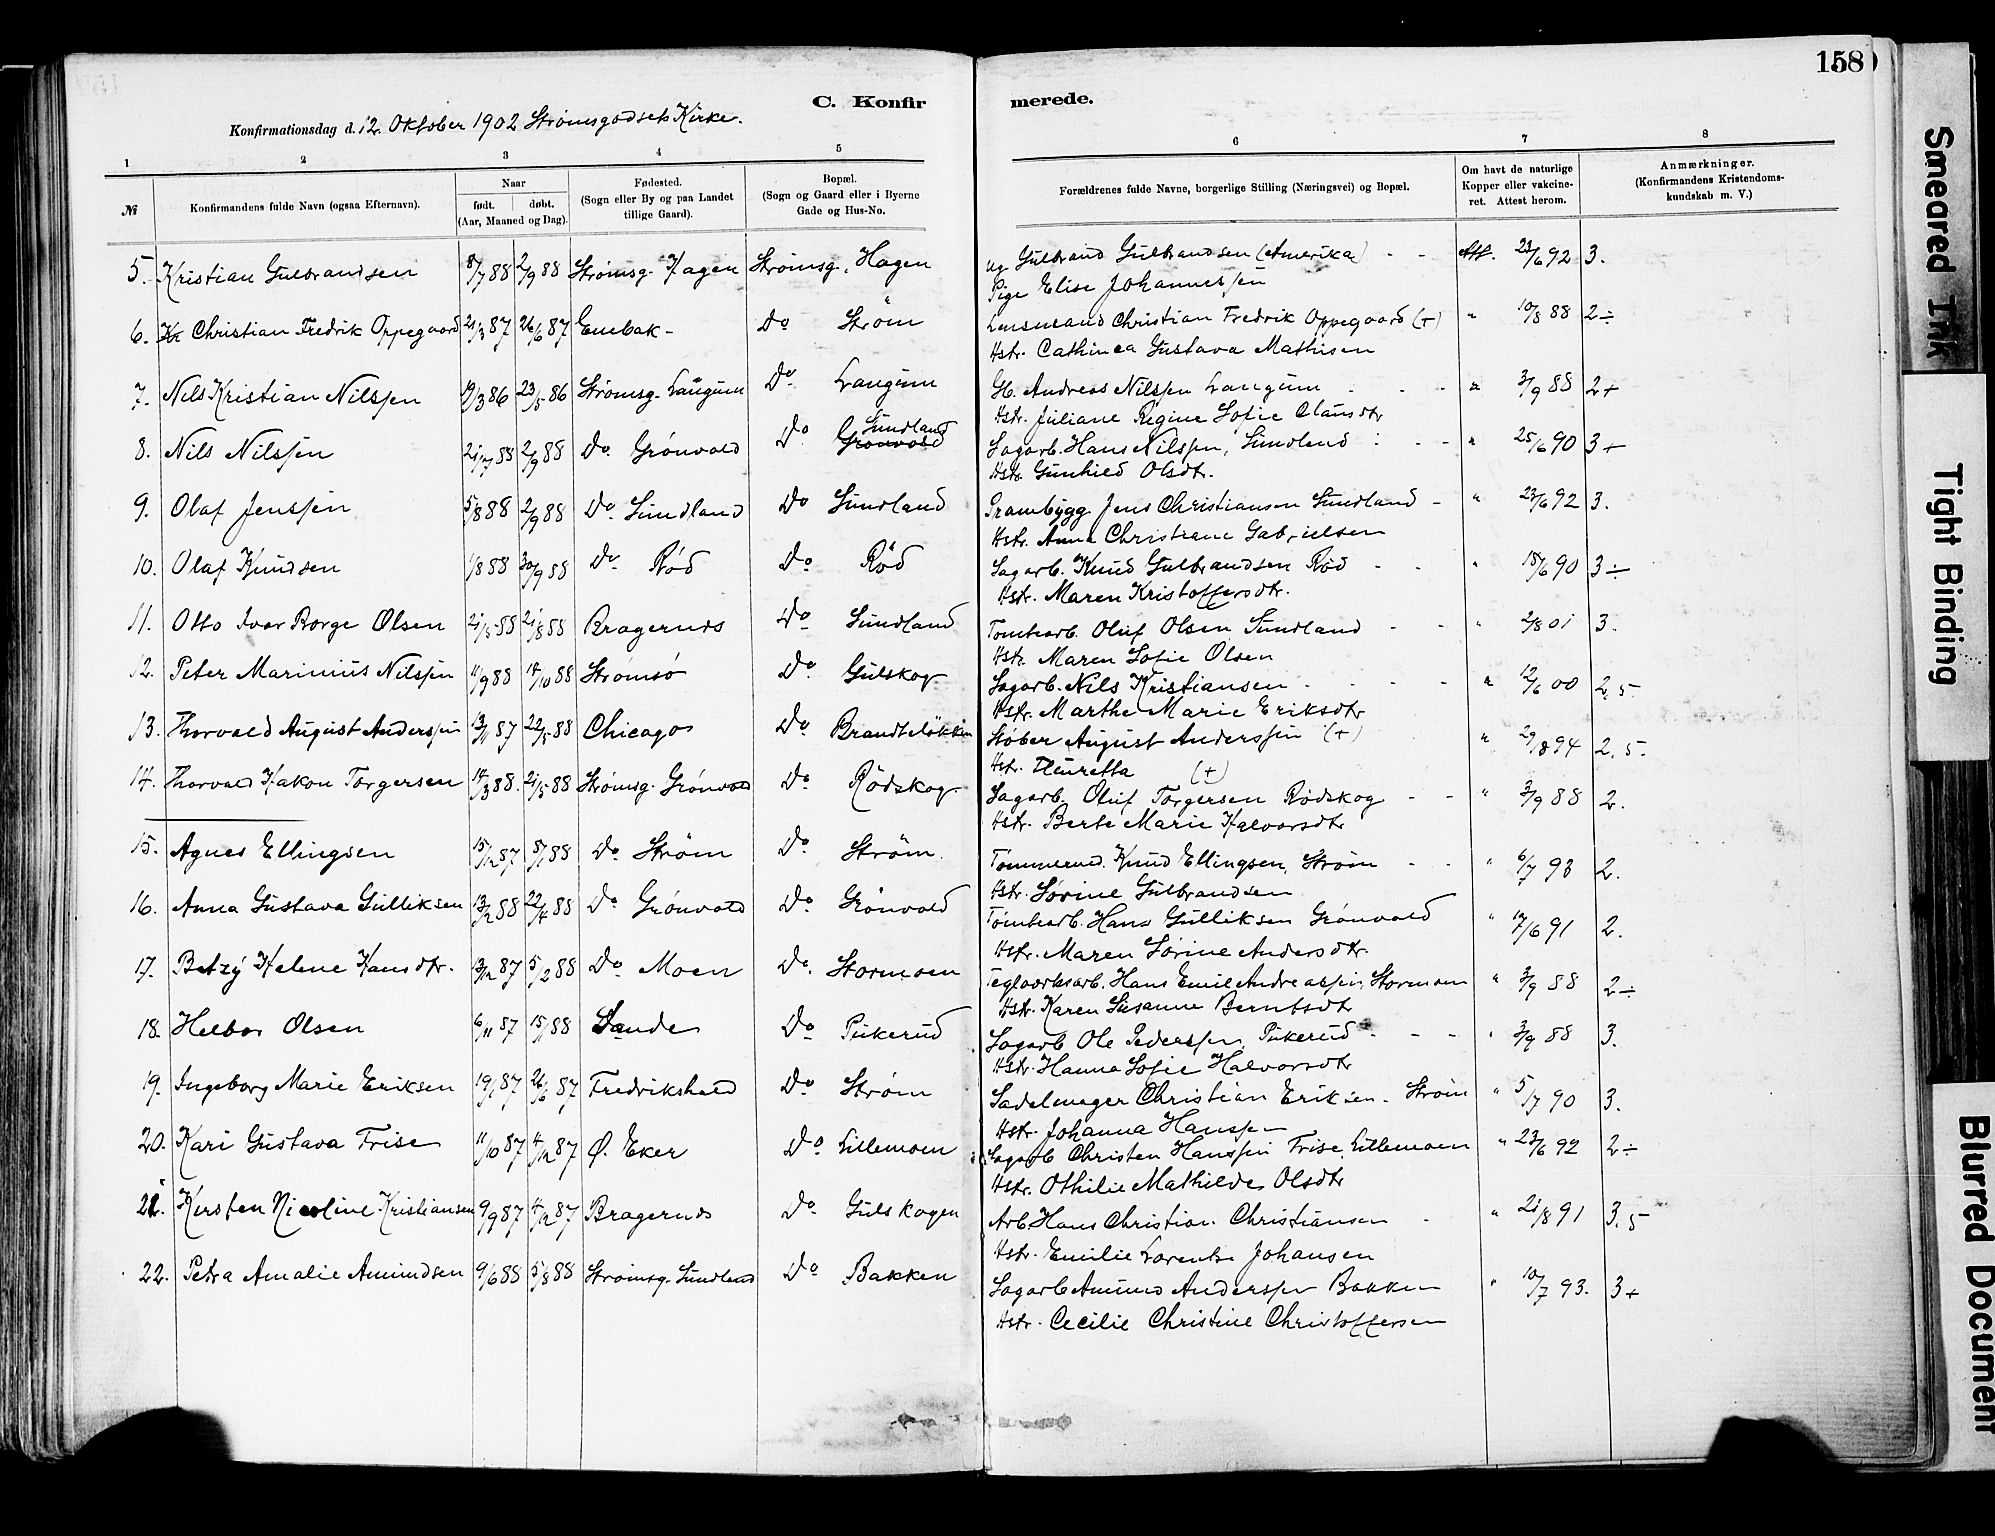 158
C. Konfir merede.
Konfirmationsdag d. 12. Oktober 1902 Strømsgodsets Kirke.
1 2 3 4 5 6 7 8
№ Konfirmandens fulde Navn (ogsaa Efternavn). Naar født. døbt. (Aar, Maaned og Dag). Fødested. (Sogn eller By og paa Landet tillige Gaard). Bopæl. (Sogn og Gaard eller i Byerne Gade og Hus-No. Forældrenes fulde Navne, borgerlige Stilling (Næringsvei) og Bopæl. Om havt de naturlige Kopper eller vakcineret. Attest herom. Anmærkninger. (Konfirmandens Kristendomskundskab m. V.)
5. Kristian Gulbrandsen 8/7 88 2/9 88 Strømsg. Hagen Strømsg. Hagen Ug Gulbrand Gulbrandsen (Amerika) - - Att. 23/6 92 3.
Pige Elise Johannessen
6. Christian Fredrik Oppegaard 21/3 87 26/6 87 Enebak - Do Strøm Lensmand Christian Fredrik Oppegaard (+) " 10/8 88 2÷
Hstr. Cathinca Gustava Mathisen
7. Nils Kristian Nilssen 19/3 86 23/5 86 Strømsg. Langum Do Langum G. Andreas Nilssen Langum - - - " 3/9 88 2+
Hstr. Juliane Regine Sofie Clausdtr
8. Nils Nilssen 21/7 88 2/9 88 Do Grønvold Do Grønvold Sundland Sagarb. Hans Nilssen, Sundland - - " 25/6 90 3+
Hstr. Gunhild Olsdt.
9. Olaf Jenssen 5/8 88 2/9 88 Do Sundland Do Sundland Prambygg Jens Christiansen Sundland - " 23/6 92 3.
Hstr. Anna Christiane Gabrielsen
10. Olaf Knudsen 1/8 88 30/9 88 Do Rød Do Rød Sagarb. Knud Gulbrandsen Rød - - " 18/6 90 3÷
Hstr. Maren Kristoffersdtr.
11. Otto Ivar Borge Olsen 21/5 88 21/8 88 Bragernes Do Sundland Tomtearb. Oluf Olsen Sundland - - " 2/8 01 3.
Hstr. Maren Sofie Olsen
12. Peter Marinius Nilssen 11/9 88 14/10 88 Strømsø Do Gulskog Sagarb. Nils Kristiansen - - - - " 12/6 00 2,5.
Hstr. Marthe Marie Eriksdtr
13. Thorvald August Anderssen 13/11 87 22/5 88 Chicago Do Brandteløkken Støber August Anderssen (+) " 29/8 94 2,5.
Hstr. Henretta (+)
14. Thorvald Hakon Torgersen 14/3 88. 21/5 88 Strømsg. Grønvold Do Rødskog Sagarb. Oluf Torgersen Rødskog - - " 3/9 88 2.
Hstr. Berte Marie Halvorsdtr
15. Agnes Ellingsen 15/12 87 8/1 88 Do Strøm Do Strøm. Tømmermd. Knud Ellingsen, Strøm - - " 6/7 93 2.
Hstr. Sørine Gulbrandsen
16. Anna Gustava Gulliksen 13/2 88 22/4 88 Do Grønvold Do Grønvold Tomtearb. Hans Gulliksen Grønvold " 17/6 91 2.
Hstr. Maren Sørine Andersdtr.
17. Betzy Helene Hansdtr. 13/12 87 5/2 88 Do Moen Do. Stormoen Teglværksarb. Hans Emil Andreassen, Stormoen " 3/9 88 2÷
Hstr. Karen Susanne Berntsdt
18. Helbor Olsen 6/11 87 15/1 88 Sande Do Pukerud Sagarb Ole Pederssen, Pukerud - - - " 3/9 88 3.
Hstr. Hanna Sofie Halvorsdtr
19. Ingeborg Marie Eriksen 19/1 87 26/6 87 Fredrikshald Do Strøm Sadelmager Christian Eriksen - Strøm " 5/7 90 3.
Hstr. Johanna Hanssen
20. Kari Gustava Frise 11/10 87 4/12 87 Ø. Eker Do Lillemoen Sagarb Christen Hanssen Frise, Lillemoen " 23/6 92 2÷
Hstr. Othilie Mathilde Olsdtr
21. Kirsten Nicoline Kristiansen 9/9 87 4/12 87 Bragernes Do Gulskogen Arb. Hans Christian Christiansen - " 21/8 91 3.5
Hstr. Emilie Lorentse Johansen
22. Petra Amalie Amundsen 9/6 88 5/8 88 Strømsg. Sundland Do Bakken Sagarb Amund Anderssen Bakken " 10/7 93. 3+
Hstr. Cecilie Christine Christoffersen
Smeared Ink
Tight Binding
Blurred Document